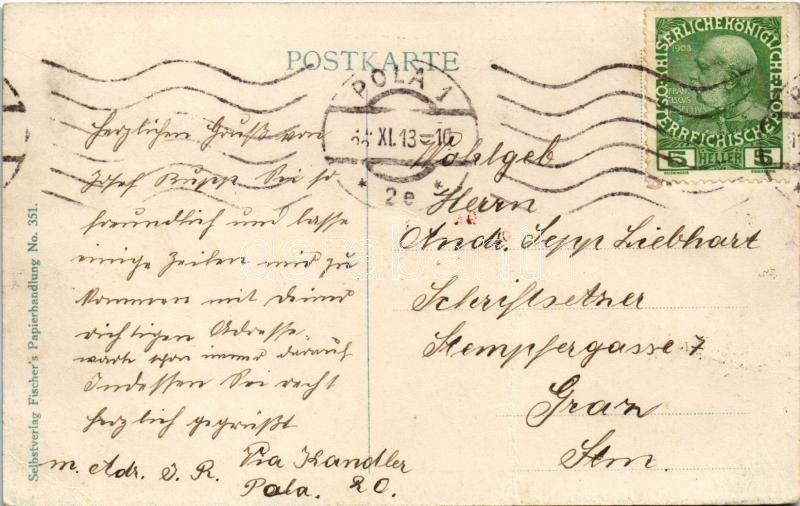 POSTKARTE
KAISERLICHE KÖNIGLICHE
ÖSTERREICHISCHE POST
1908
5 HELLER 5
POLA 1
XI. 13
* 2e *
Herzlichen Gruß von
Josef Rupp Sei so
freundlich und lasse
einige Zeilen mir zu
kommen mit deiner
richtigen Adresse.
warte schon immer darauf
Indessen Sei recht
herzlich gegrüßt
m. Adr. J. R. Via Kandler
Pola. 20.
Wohlgeb
Herrn
Andr. Sepp Liebhart
Schriftsetzer
Stempfergasse 7
Graz
Stm.
Selbstverlag Fischer's Papierhandlung No. 351.
darabanth